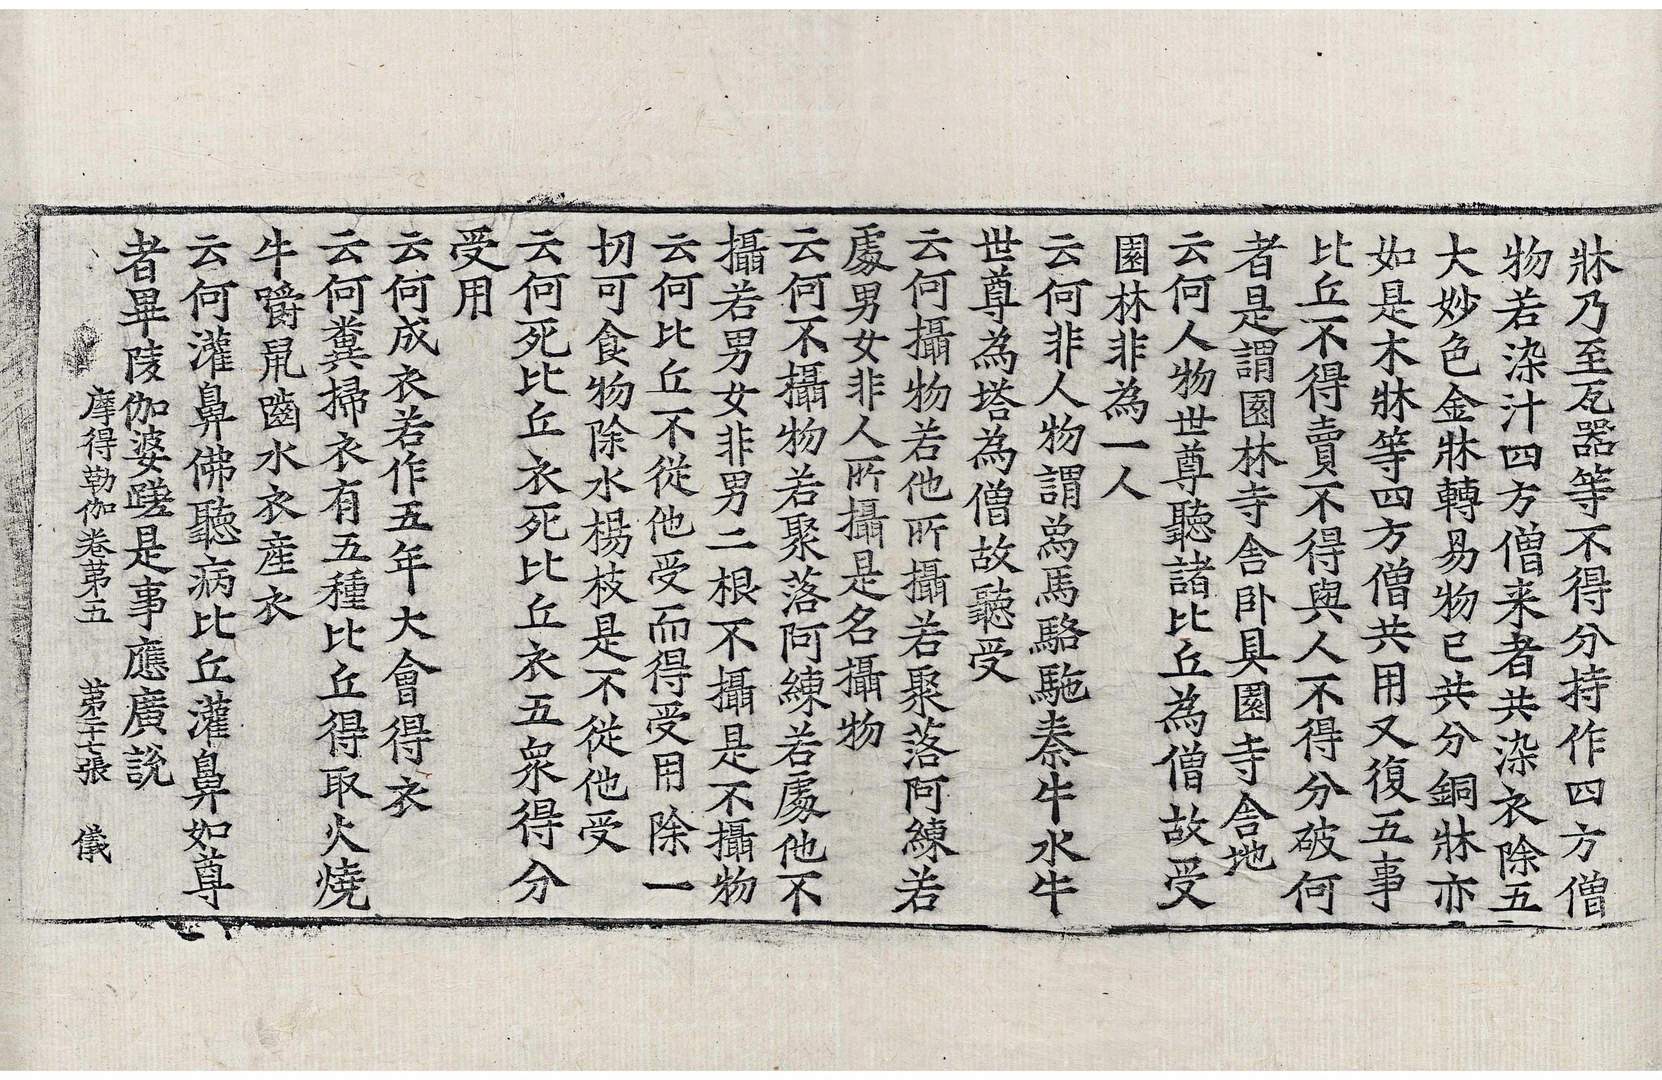 牀乃至瓦器等不得分持作四方僧
物若染汁四方僧来者共染衣除五
大妙色金牀轉易物已共分銅牀亦
如是木牀等四方僧共用又復五事
比丘不得賣不得與人不得分破何
者是謂園林寺舍卧具園寺舍地
云何人物世尊聽諸比丘為僧故受
園林非為一人
云何非人物謂爲馬駱駞㮈牛水牛
世尊為塔為僧故聽受
云何攝物若他所攝若聚落阿練若
處男女非人所攝是名攝物
云何不攝物若聚落阿練若處他不
攝若男女非男二根不攝是不攝物
云何比丘不從他受而得受用除一
切可食物除水楊枝是不從他受
云何死比丘衣死比丘衣五衆得分
受用
云何成衣若作五年大會得衣
云何糞掃衣有五種比丘得取火燒
牛嚼鼠嚙水衣產衣
云何灌鼻佛聽病比丘灌鼻如尊
者畢陵伽婆蹉是事應廣說
摩得勒伽卷苐五 苐二十七張 儀